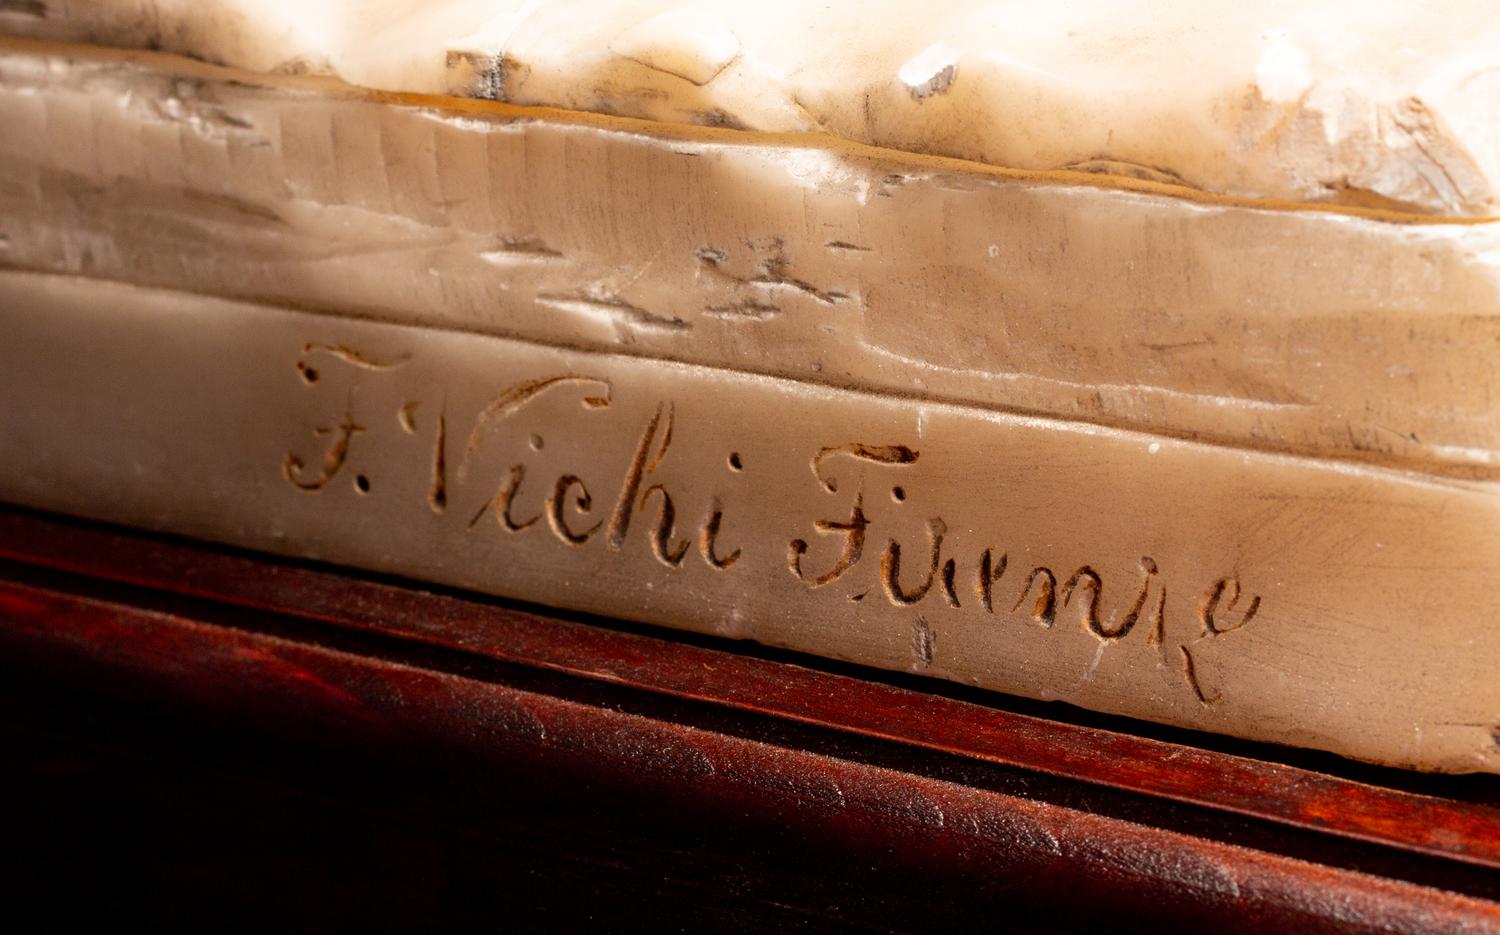 F. Vichi Firenze